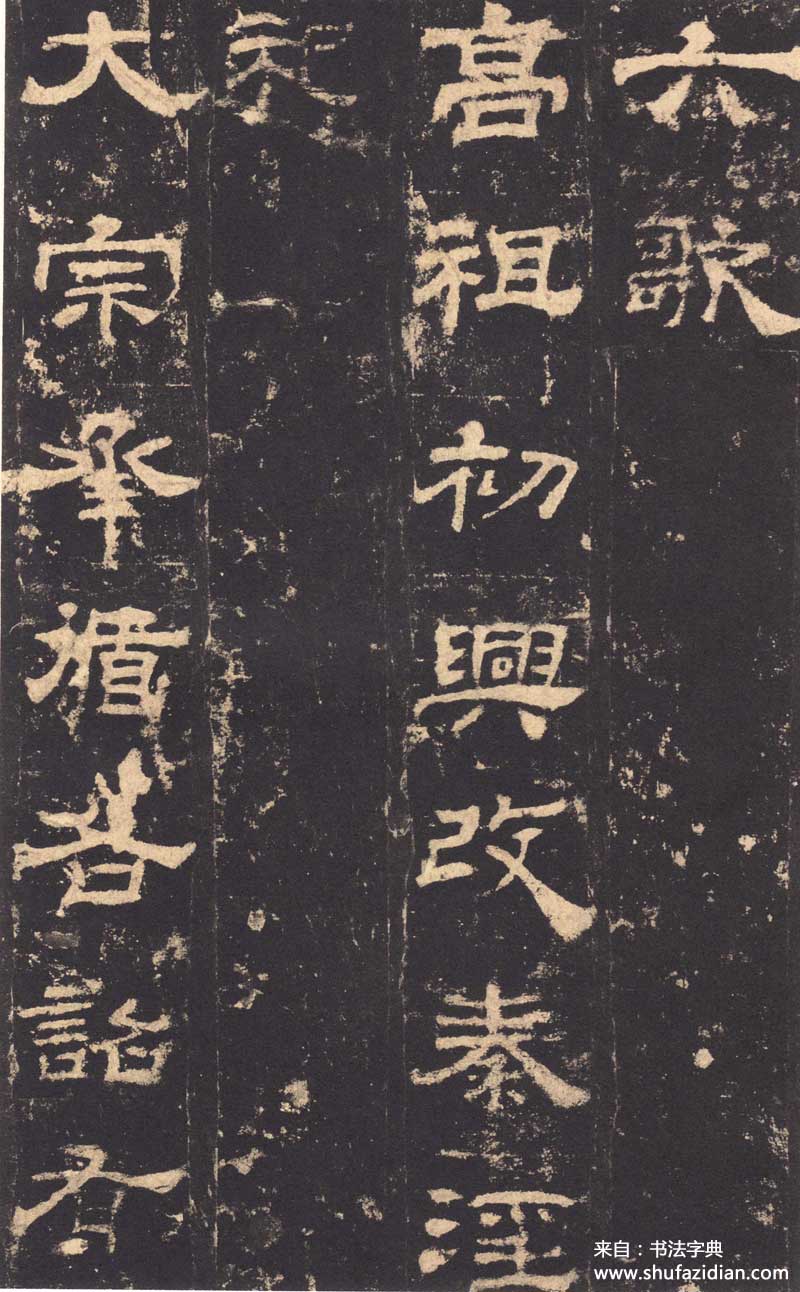 六歌
高祖初興改秦淫
祀
大宗承循各詔有
来自：书法字典
www.shufazidian.com